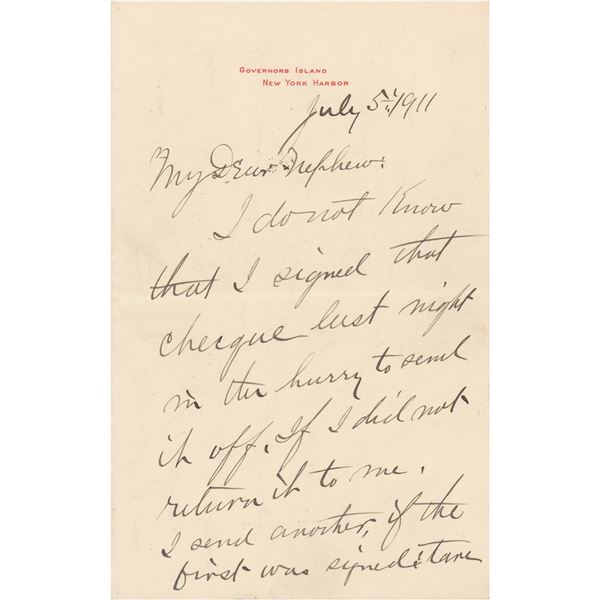 GOVERNORS ISLAND
NEW YORK HARBOR
July 5th 1911
My Dear Nephew:
I do not Know
that I signed that
checque last night
in the hurry to send
it off. If I did not
return it to me.
I send another, if the
first was signed tare